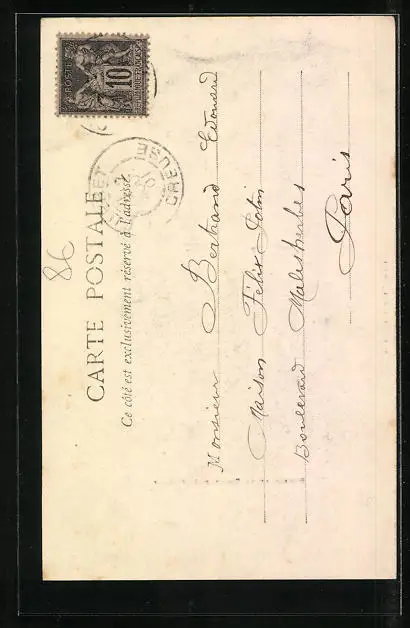 POSTES
10
REPUBLIQUE FRANÇAISE
CREUSE
10
86
CARTE POSTALE
Ce côté est exclusivement réservé à l'adresse.
Monsieur Bertrand Edouard
Maison Félix Potin
Boulevard Malesherbes
Paris